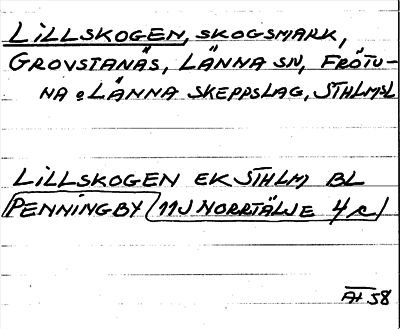 LILLSKOGEN, SKOGSMARK,
GROVSTANÄS, LÄNNA SN, FRÖTU-
NA o LÄNNA SKEPPSLAG, STHLMSL
LILLSKOGEN EK STHLM BL
PENNINGBY 11J NORRTÄLJE 4 c
AH 58